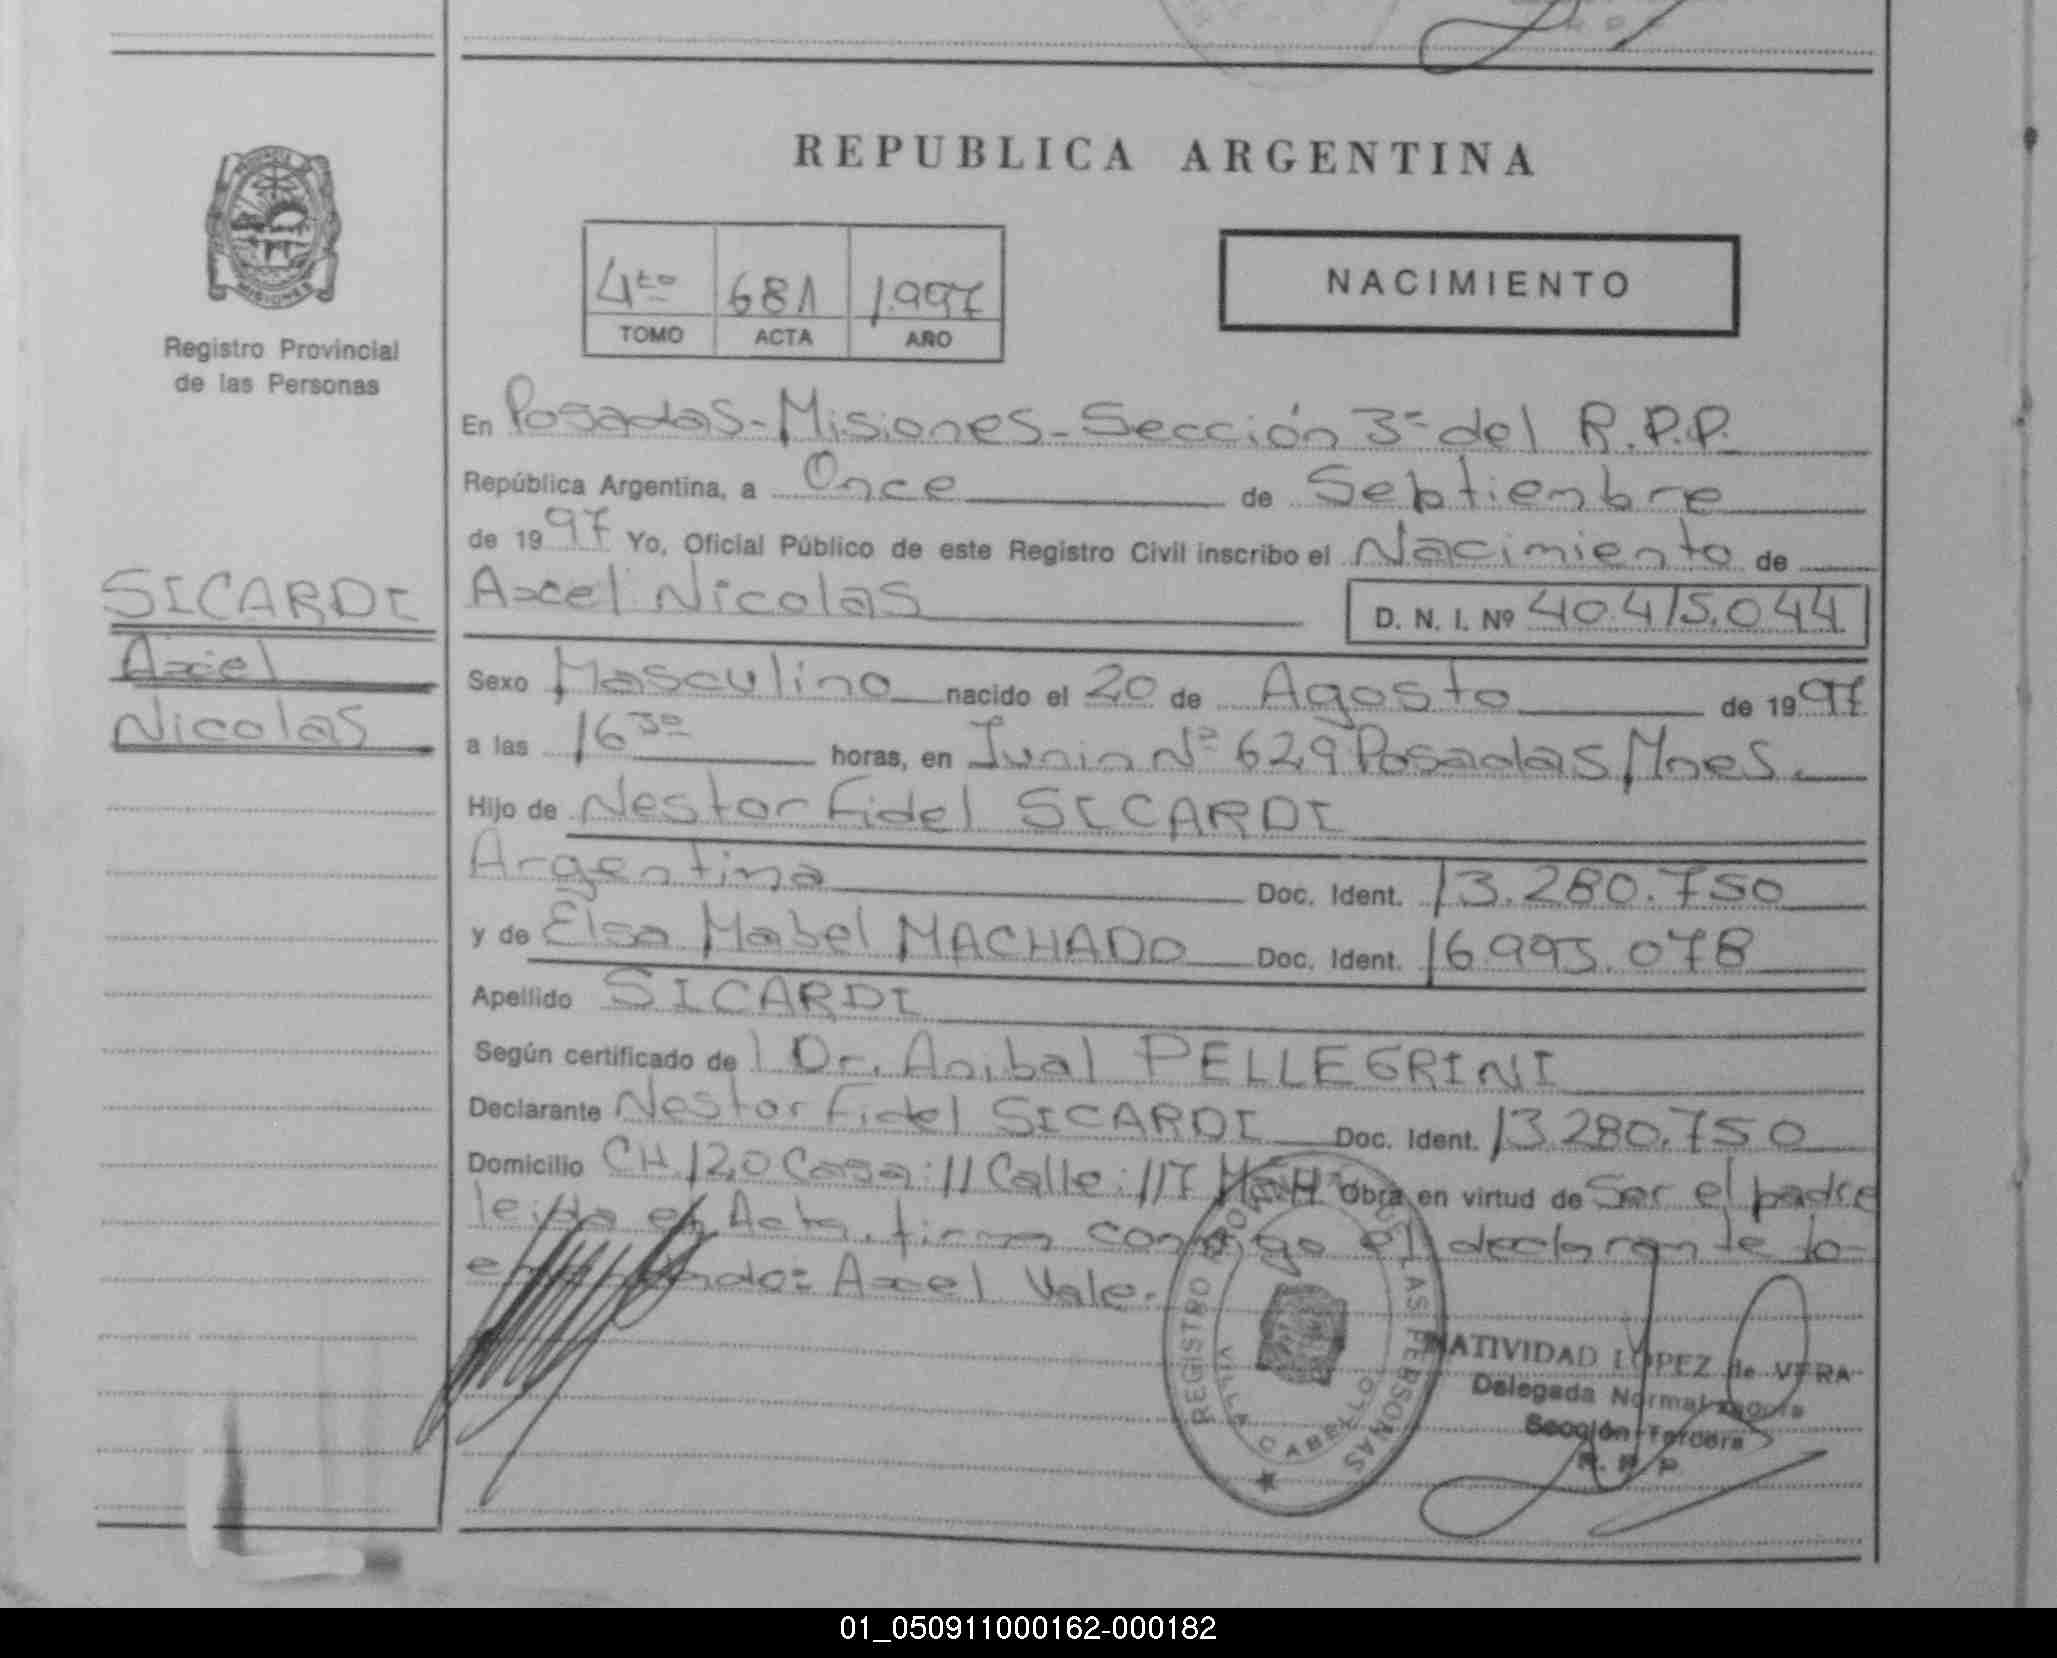 REPUBLICA ARGENTINA
PROVINCIA
MISIONES
Registro Provincial
de las Personas
4to 681 1.997
TOMO ACTA AÑO
NACIMIENTO
En Posadas-Misiones-Sección 3ª del R.P.P.
República Argentina, a Once de Septiembre
de 1997 Yo, Oficial Público de este Registro Civil inscribo el Nacimiento de
Axel Nicolas D. N. I. Nº 40.415.044
SICARDI
Axel
Nicolas
Sexo Masculino nacido el 20 de Agosto de 1997
a las 16 30 horas, en Junin Nº 629 Posadas Mnes.
Hijo de Nestor Fidel SICARDI
Argentina Doc. Ident. 13.280.750
y de Elsa Mabel MACHADO Doc. Ident. 16.995.078
Apellido SICARDI
Según certificado de l Dr. Anibal PELLEGRINI
Declarante Nestor Fidel SICARDI Doc. Ident. 13.280.750
Domicilio CH 120 Casa: 11 Calle: 117 Obra en virtud de Ser el padre
leida el Acta, firma conmigo el declarante lo
enmendado: Axel Vale.
REGISTRO PROVINCIAL DE LAS PERSONAS
VILLA CABELLO
NATIVIDAD LOPEZ de VERA
Delegada Normalizadora
Sección Tercera
R. P. P.
01_050911000162-000182